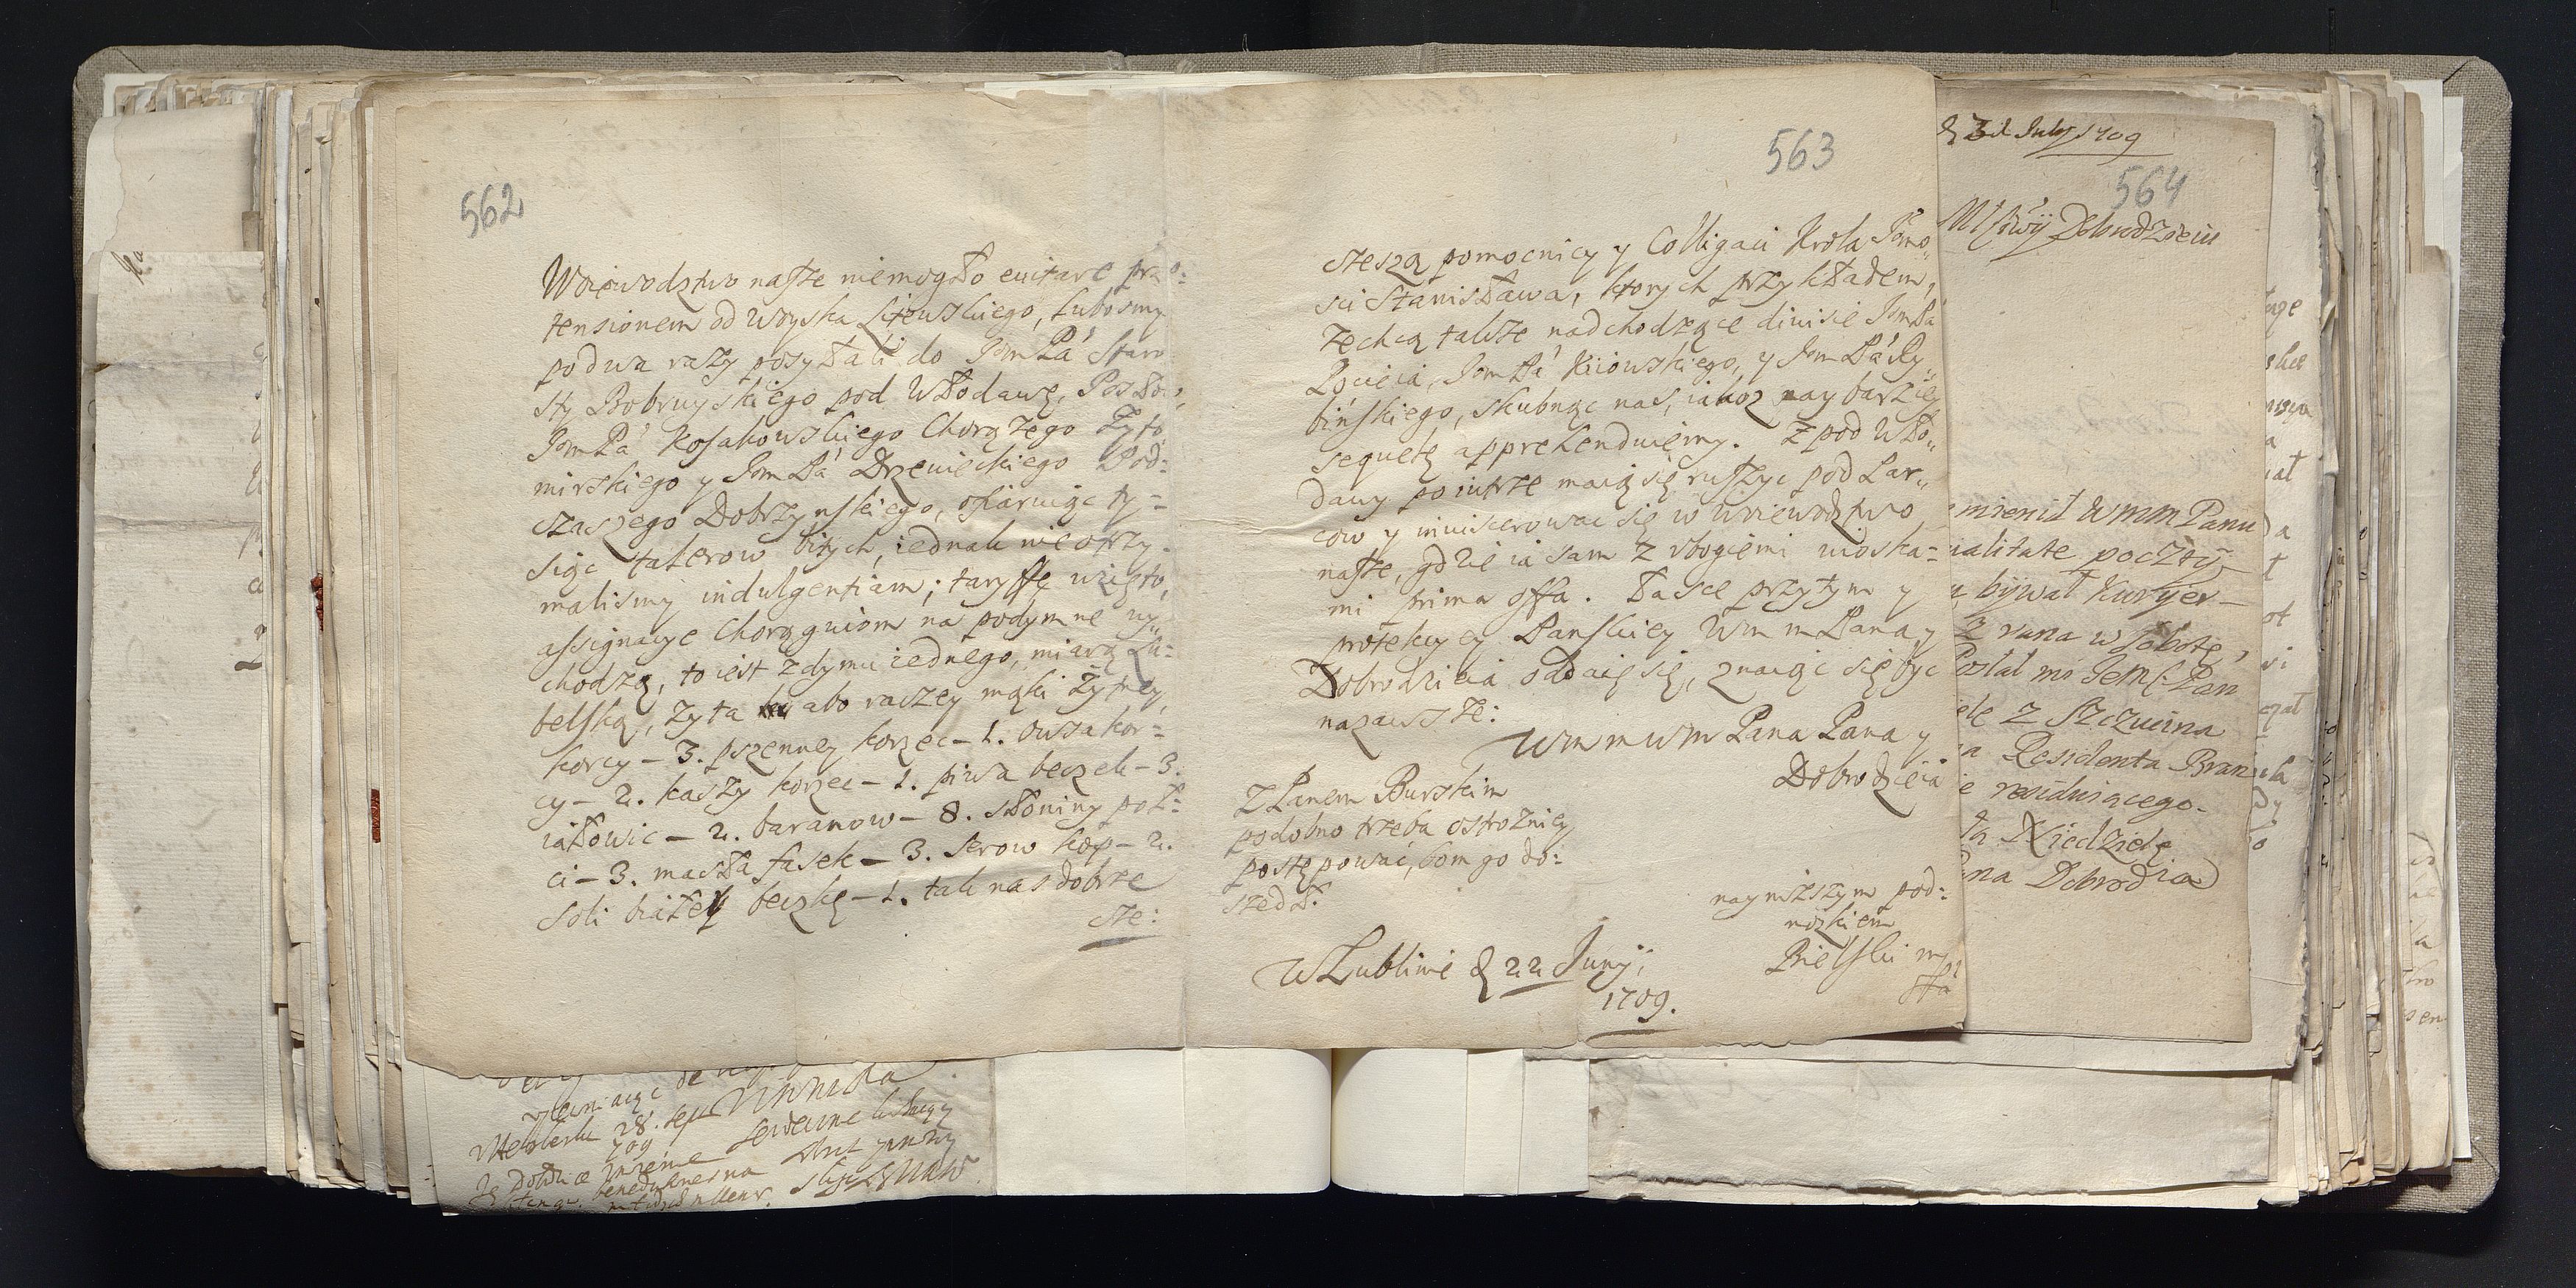 562
Woiewodztwo nasze niemogło euitare prę-
tensionem od woyska Litewskiego, lubosmy
po dwa razy posyłali do JomPá Staro
sty Bobruyskiego pod Włodawę, Posłow
JomPá Kosakowskiego Chorążego Żyto
mirskiego y JomPá Drzewieckiego Pod:
czaszego Dobrzynskiego, ofiaruiąc ty=
siąc talerow bitych, iednak nie otrzy-
malismy indulgentiam; taryffę wzięto,
assignacye Chorągwiom na podymne wy,,
chodzą, to iest z dymu iednego, miarą Lu:
belską, żyta abo raczey mąki żytney,
korcy – 3. pszenney korzec – 1. owsa kor=
cy – 2. kaszy korzec – 1. piwa beczek – 3.
iałowic – 2. baranow – 8. słoniny poł:
ci – 3. masła fasek – 3. serow kop – 2.
soli białey beczkę – 1. tak nas dobrze
cze:
563
czeszą pomocnicy y Colligaci Krola Jmo,,
sci Stanisława, ktorych przykładem,
zechcą także nadchodzące diuisie JomPá
Pocieia, JomPá Kiiowskiego, y JomPá Ry,,
binskiego, skubnąc nas, iakoz naybarziey
sequelę apprehenduiemy. Z pod Wło,,
dawy po iutrze maią się ruszyc pod Par,,
cow y inuiscerowac się w woiewodztwo
nasze, gdzie ia sam z ubogiemi wioska=
mi prima offa. Łasce przytym y
protekcyey Panskiey Wm m Pana y
Dobrodzieia oddaię się, znaiąc się byc
nazawsze:
Wm m wm Pana Pana y
Dobrodzieia
Z Panem Burskim
podobno trzeba ostrozniey
postępować, bom go do:
szedł.
nayniższym pod:
nozkiem
Bielski mp
W Lublinie d 22 Junij
1709.
July 1709
564
Dobrodzieiu
mienił WmmPanu
ualitate poczty
bywał Kuryer
z rana w Sobotę,
Posłał mi JeMc Pan
z Szczucina
Residenta Bran
residuiącego.
Niedzielę
Dobrodzia
28.
709